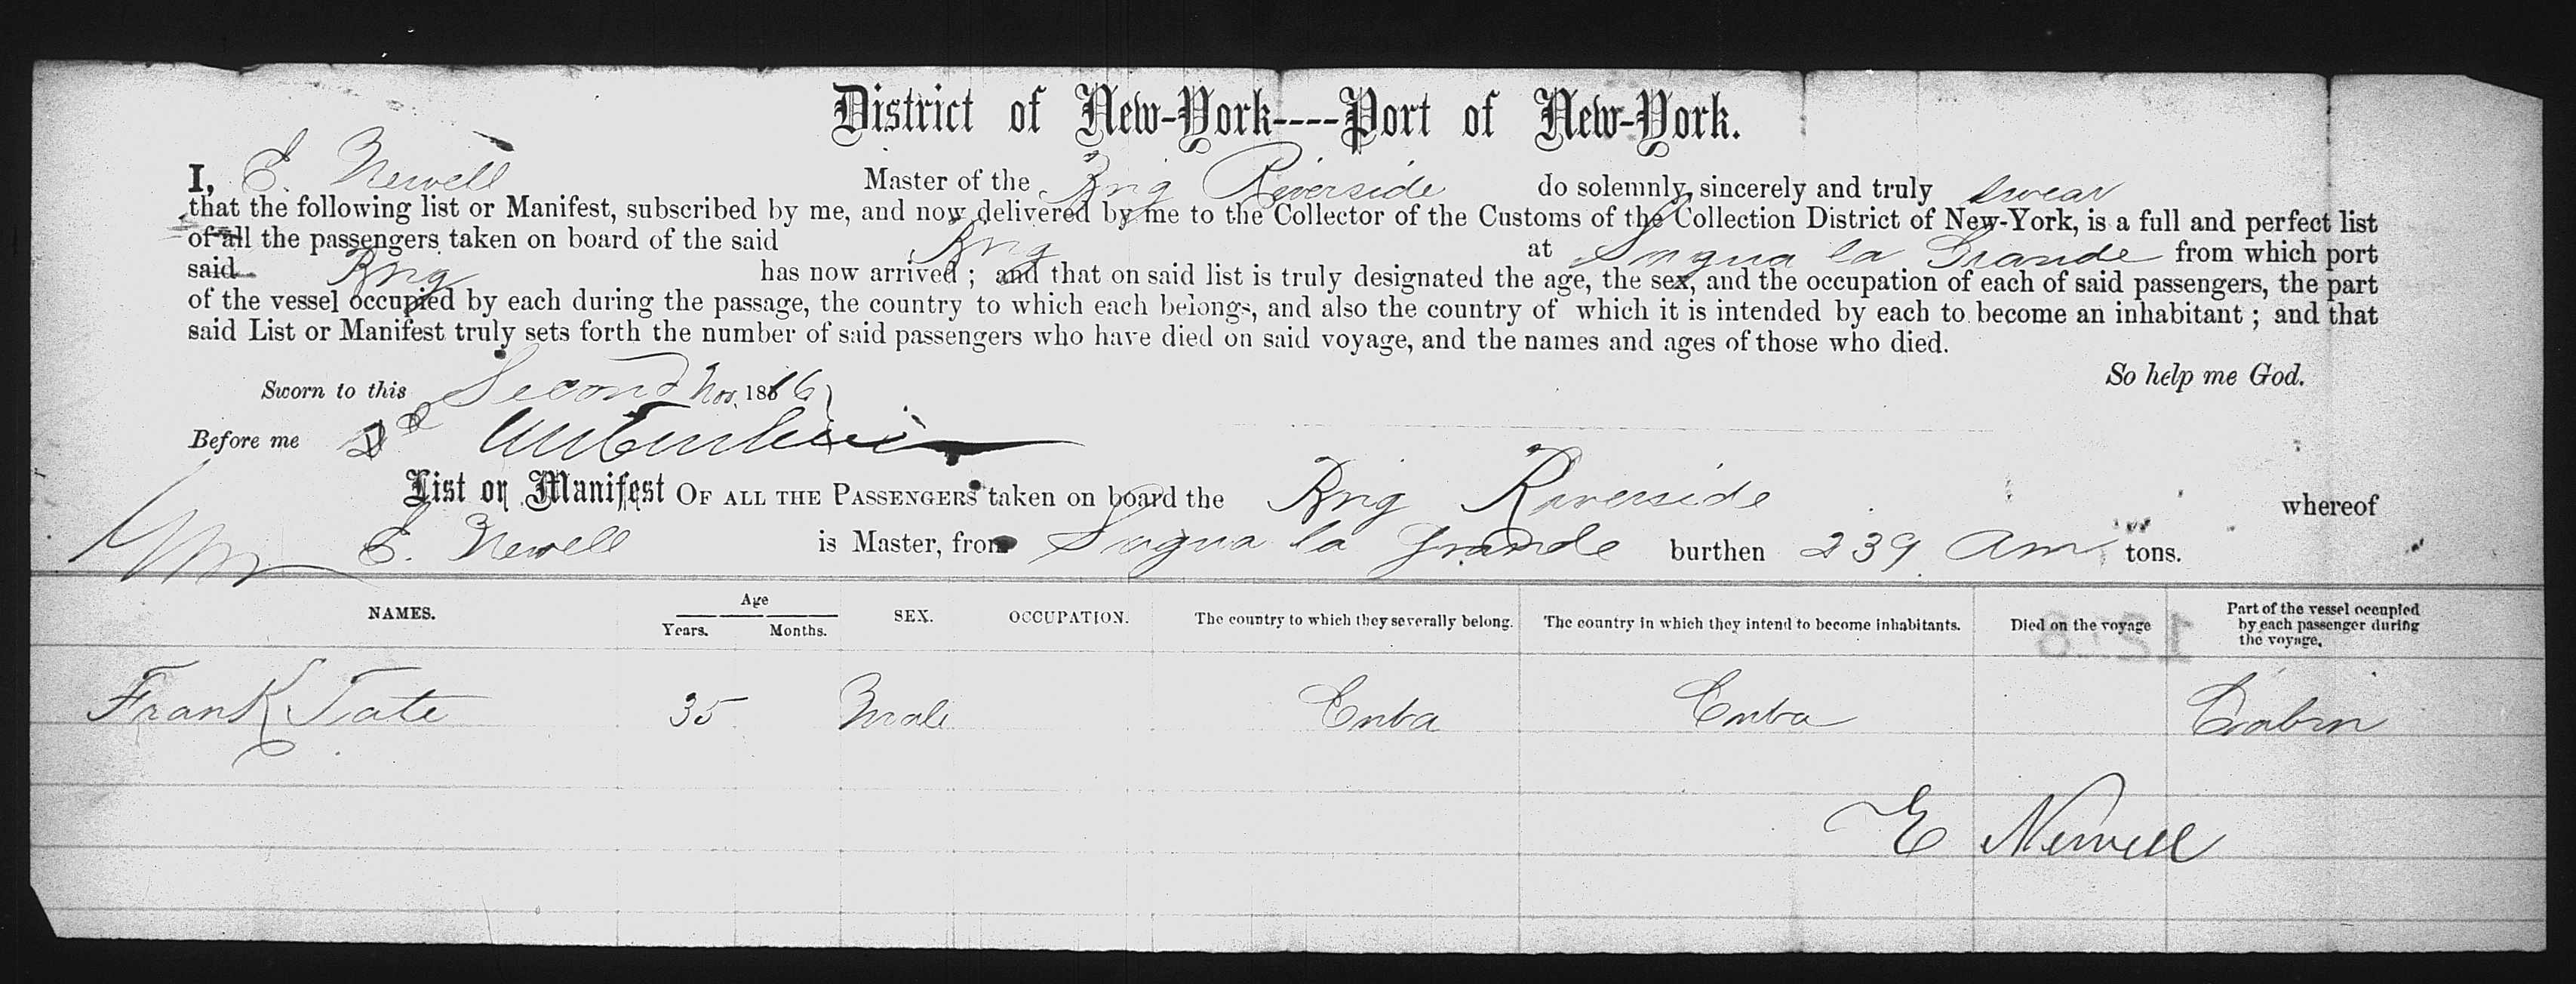 District of New-York----Port of New-York.
I, E. Newell Master of the Brig Riverside do solemnly, sincerely and truly swear
that the following list or Manifest, subscribed by me, and now delivered by me to the Collector of the Customs of the Collection District of New-York, is a full and perfect list
of all the passengers taken on board of the said Brig at Sagua la Grande from which port
said Brig has now arrived ; and that on said list is truly designated the age, the sex, and the occupation of each of said passengers, the part
of the vessel occupied by each during the passage, the country to which each belongs, and also the country of which it is intended by each to become an inhabitant ; and that
said List or Manifest truly sets forth the number of said passengers who have died on said voyage, and the names and ages of those who died.
So help me God.
Sworn to this Second Nov. 1866
Before me
List or Manifest OF ALL THE PASSENGERS taken on board the Brig Riverside whereof
E. Newell is Master, from Sagua la Grande burthen 239 Am tons.
NAMES. Age Years. Months. SEX. OCCUPATION. The country to which they severally belong. The country in which they intend to become inhabitants. Died on the voyage Part of the vessel occupied by each passenger during the voyage.
Frank Tate 35 Male Cuba Cuba Cabin
E Newell